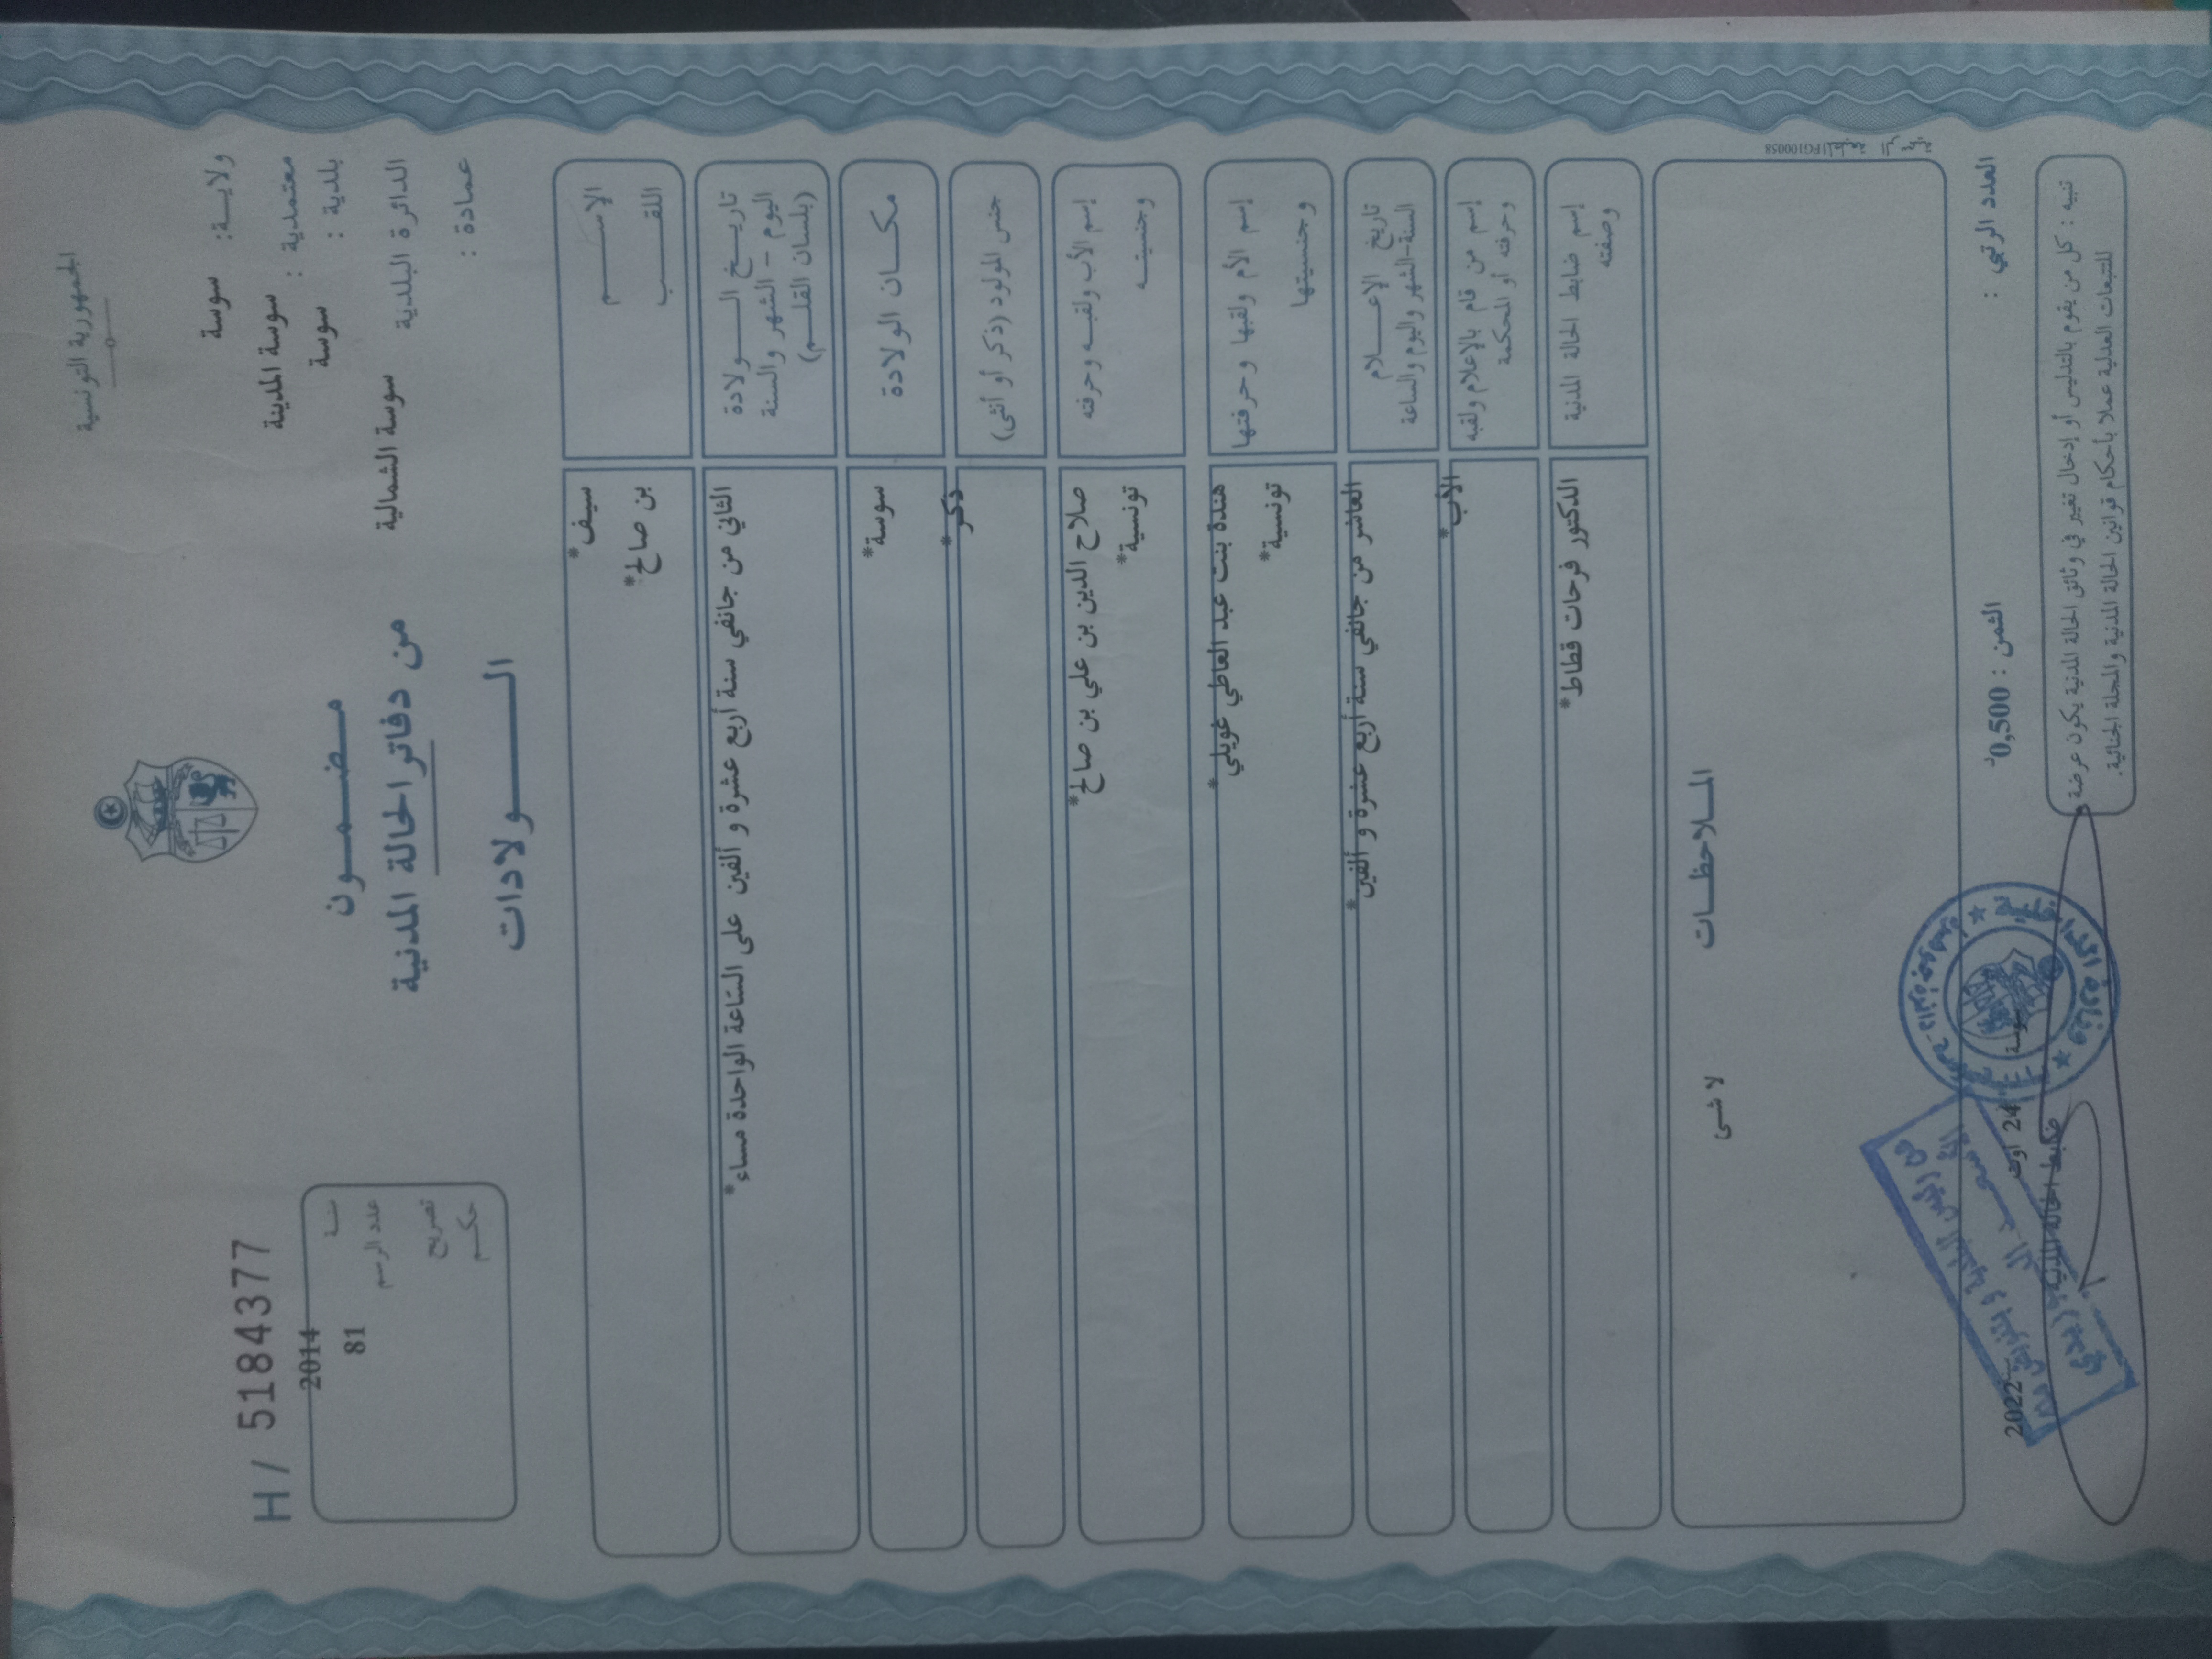 الجمهورية التونسية
ولاية: سوسة
معتمدية : سوسة المدينة
بلدية : سوسة
الدائرة البلدية سوسة الشمالية
عمادة :
مضمون
من دفاتر الحالة المدنية
الولادات
H / 5184377
سنة 2014
عدد الرسم 81
تصريح
حكم
الإسم سيف*
اللقب بن صالح*
تاريخ الولادة الثاني من جانفي سنة أربع عشرة و ألفين على الساعة الواحدة مساء*
اليوم – الشهر والسنة
(بلسان القلم)
مكان الولادة سوسة*
جنس المولود (ذكر أو أنثى) ذكر*
إسم الأب ولقبه وحرفته صلاح الدين بن علي بن صالح*
وجنسيته تونسية*
إسم الأم ولقبها وحرفتها هندة بنت عبد العاطي غويلي*
وجنسيتها تونسية*
تاريخ الإعلام العاشر من جانفي سنة أربع عشرة و ألفين*
السنة-الشهر واليوم والساعة
إسم من قام بالإعلام ولقبه الأب*
وحرفته أو المحكمة
إسم ضابط الحالة المدنية الدكتور فرحات قطاط*
وصفته
الملاحظات
لا شئ
FG100058
العدد الرتبي :
الثمن : 0,500د
سوسة
24 أوت 2022
ضابط الحالة المدنية
تنبيه : كل من يقوم بالتدليس أو إدخال تغيير في وثائق الحالة المدنية يكون عرضة
للتتبعات العدلية عملا بأحكام قوانين الحالة المدنية والمجلة الجنائية.